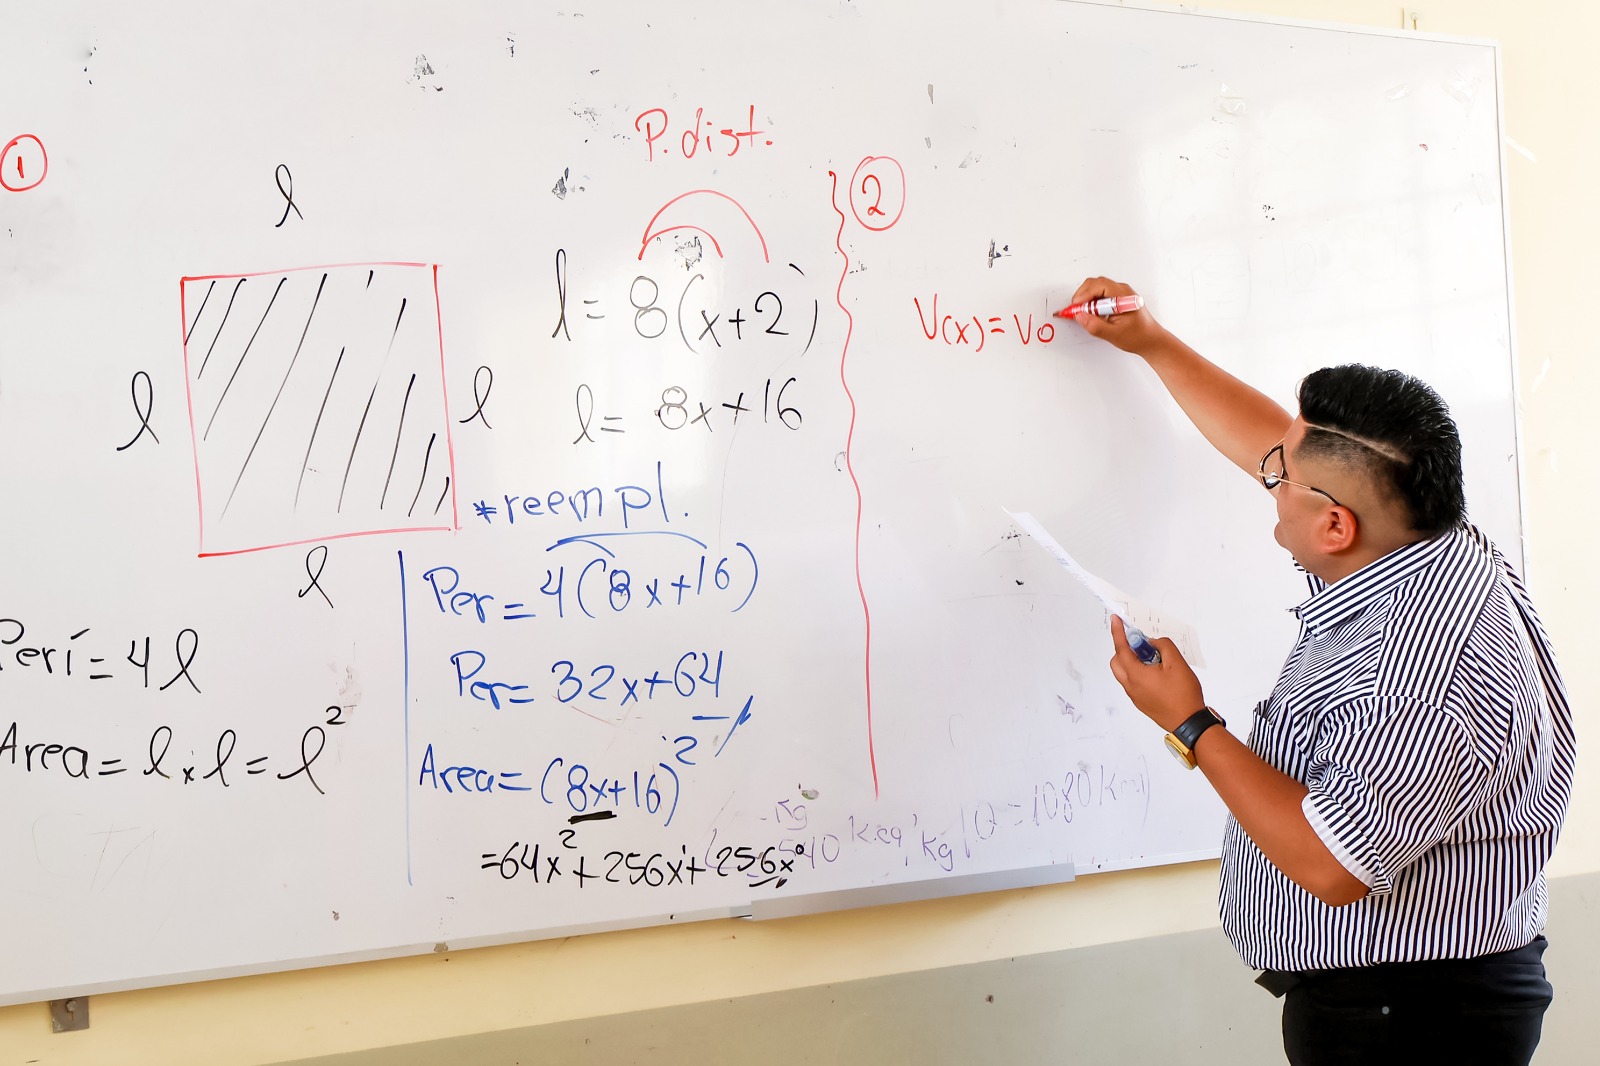 1
l
l
l
l
Perí = 4l
Area = l x l = l²
P. dist.
l = 8(x+2)
l = 8x+16
*reempl.
Per = 4(8x+16)
Per = 32x+64
Area = (8x+16)²
=64x²+256x¹+256x⁰
Kg
540 Kcal/Kg
Q = 1080 Kcal
2
V(x) = Vo